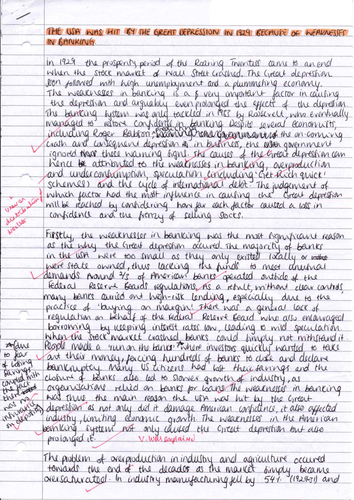 THE USA WAS HIT BY THE GREAT DEPRESSION IN 1929 BECAUSE OF WEAKNESSES
IN BANKING.
In 1929 the prosperity period of the Roaring Twenties came to an end
when the stock market of Wall Street crashed. The Great depression
soon followed with high unemployment and a plummeting economy.
The weaknesses in banking is a very important factor in causing
the depression and arguably even prolonged the effects of the depression.
The banking system was only rectified in 1933 by Roosevelt, who eventually
managed to restore confidence in banking. Despite several economists,
including Roger Babson, of the on-coming
crash and consequent depression in business, the government
ignored these warning signs. The causes of the Great Depression can
hence be attributed to the weaknesses in banking, overproduction
and underconsumption, speculation (including 'Get Rich quick'
schemes) and the cycle of international debt. The judgement of
which factor had the most influence in causing the Great depression
will be reached by considering how far each factor caused a loss in
confidence and the frenzy of selling stocks.
Firstly, the weaknesses in banking was the most significant reason
as the why the Great depression occured. The majority of banks
in the USA were too small as they only existed locally or
were state owned, thus lacking the funds to meet unusual
demands. Around 4/5 of American banks operated outside of the
Federal Reserve Board's regulations, as a result, without clear controls,
many banks carried out high-risk lending, especially due to the
practice of 'buying on margin'. There was a general lack of
regulation on behalf of the Federal Reserve Board who also encouraged
borrowing by keeping interest rates low, leading to mild speculation.
When the stock market crashed, banks could simply not withstand it.
People made a 'run on the banks' where investors quickly wanted to take
out their money, forcing hundreds of banks to close and declare
bankruptcy. Many US citizens had lost their savings and the
closure of banks also led to slower growths of industry, as
organisations relied on banks for loans. The weaknesses in banking
was thus the main reason the USA was hit by the Great
depression as not only did it damage American confidence, it also affected
industry, limiting economic growth. The weaknesses in the American
banking system not only caused the Great depression but also
prolonged it.
The problem of overproduction in industry and agriculture occurred
towards the end of the decades as the market simply became
oversaturated. In industry manufacturing fell by 54% (1929-) and